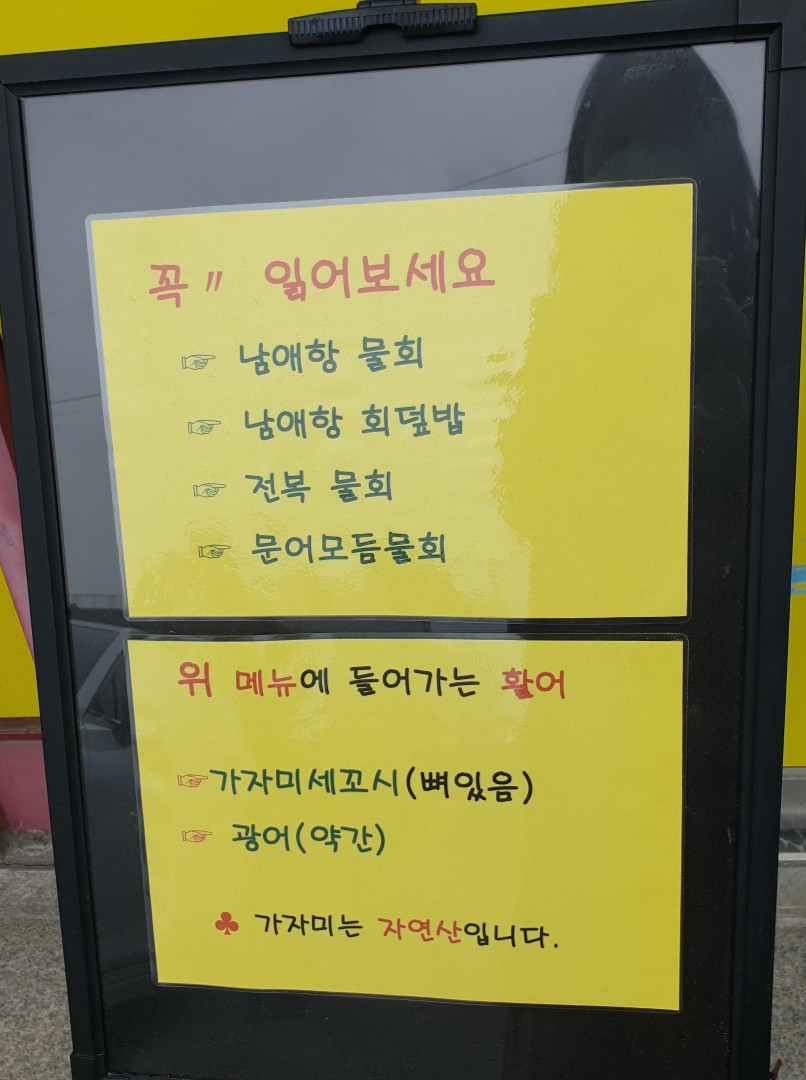 꼭〃 읽어보세요
☞ 남애항 물회
☞ 남애항 회덮밥
☞ 전복 물회
☞ 문어모듬물회
위 메뉴에 들어가는 활어
☞가자미세꼬시(뼈있음)
☞ 광어(약간)
♣ 가자미는 자연산입니다.